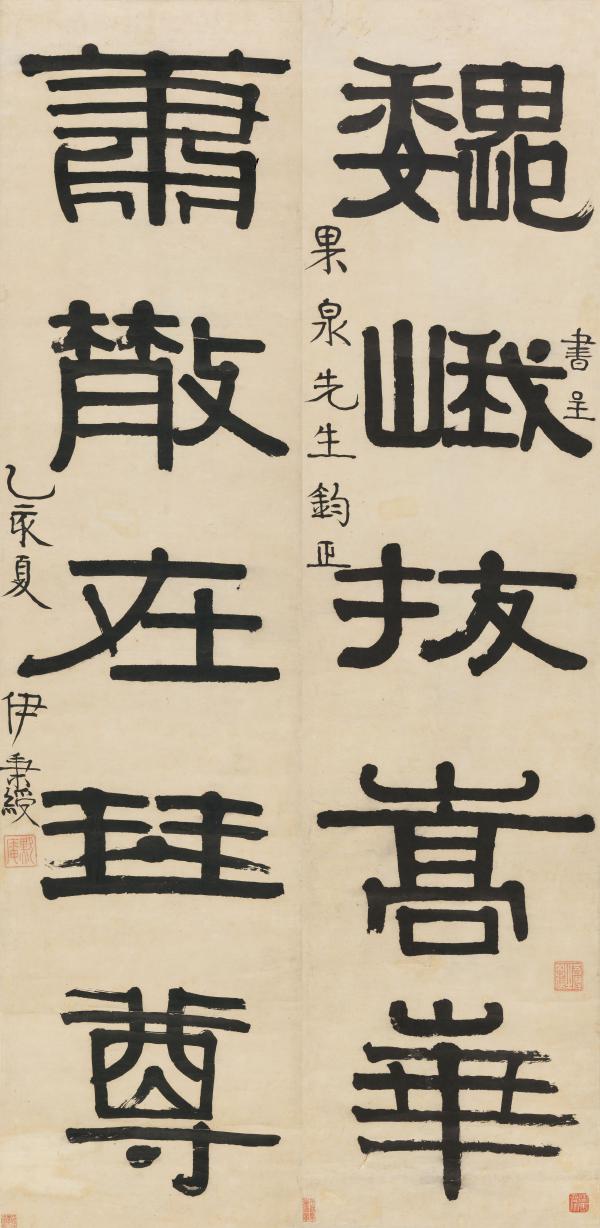 巍峨拔嵩華
書呈
果泉先生鈞正
蕭散在琴尊
乙亥夏 伊秉綬